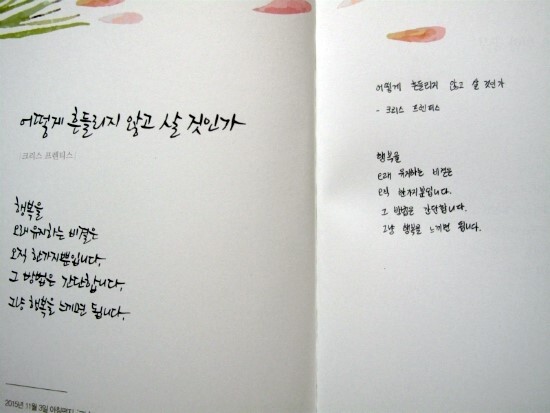 어떻게 흔들리지 않고 살 것인가
| 크리스 프렌티스 |
행복을
오래 유지하는 비결은
오직 한가지뿐입니다.
그 방법은 간단합니다.
그냥 행복을 느끼면 됩니다.
2015년 11월 3일 아침편지
어떻게 흔들리지 않고 살 것인가
- 크리스 프렌티스
행복을
오래 유지하는 비결은
오직 한가지뿐입니다.
그 방법은 간단합니다.
그냥 행복을 느끼면 됩니다.